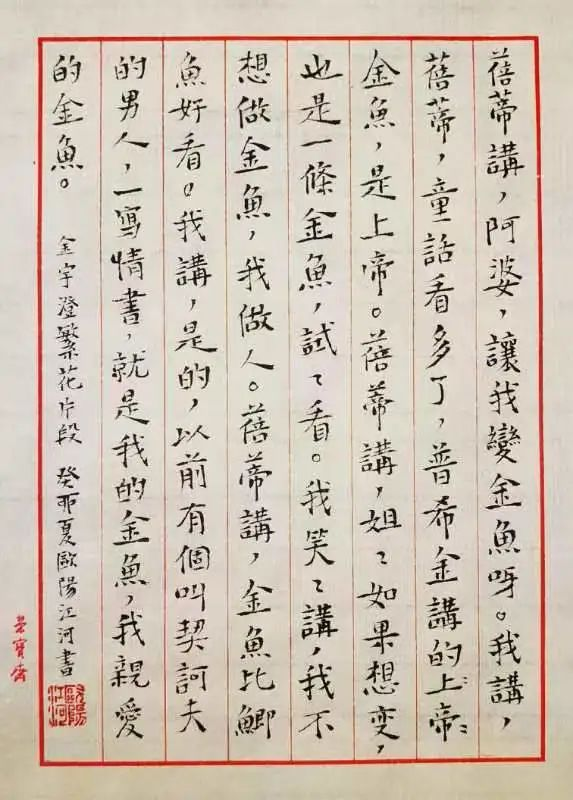 蓓蒂講，阿婆，讓我變金魚呀。我講，
蓓蒂，童話看多了，普希金講的上〻帝〻
金魚，是上帝。蓓蒂講，姐〻如果想变，
也是一條金魚，試〻看。我笑〻講，我不
想做金魚，我做人。蓓蒂講，金魚比鯽
魚好看。我講，是的，以前有個叫契訶夫
的男人，一寫情書，就是我的金魚，我親愛
的金魚。 金宇澄繁花片段 癸卯夏歐陽江河書
歐陽江河
荣寶齋